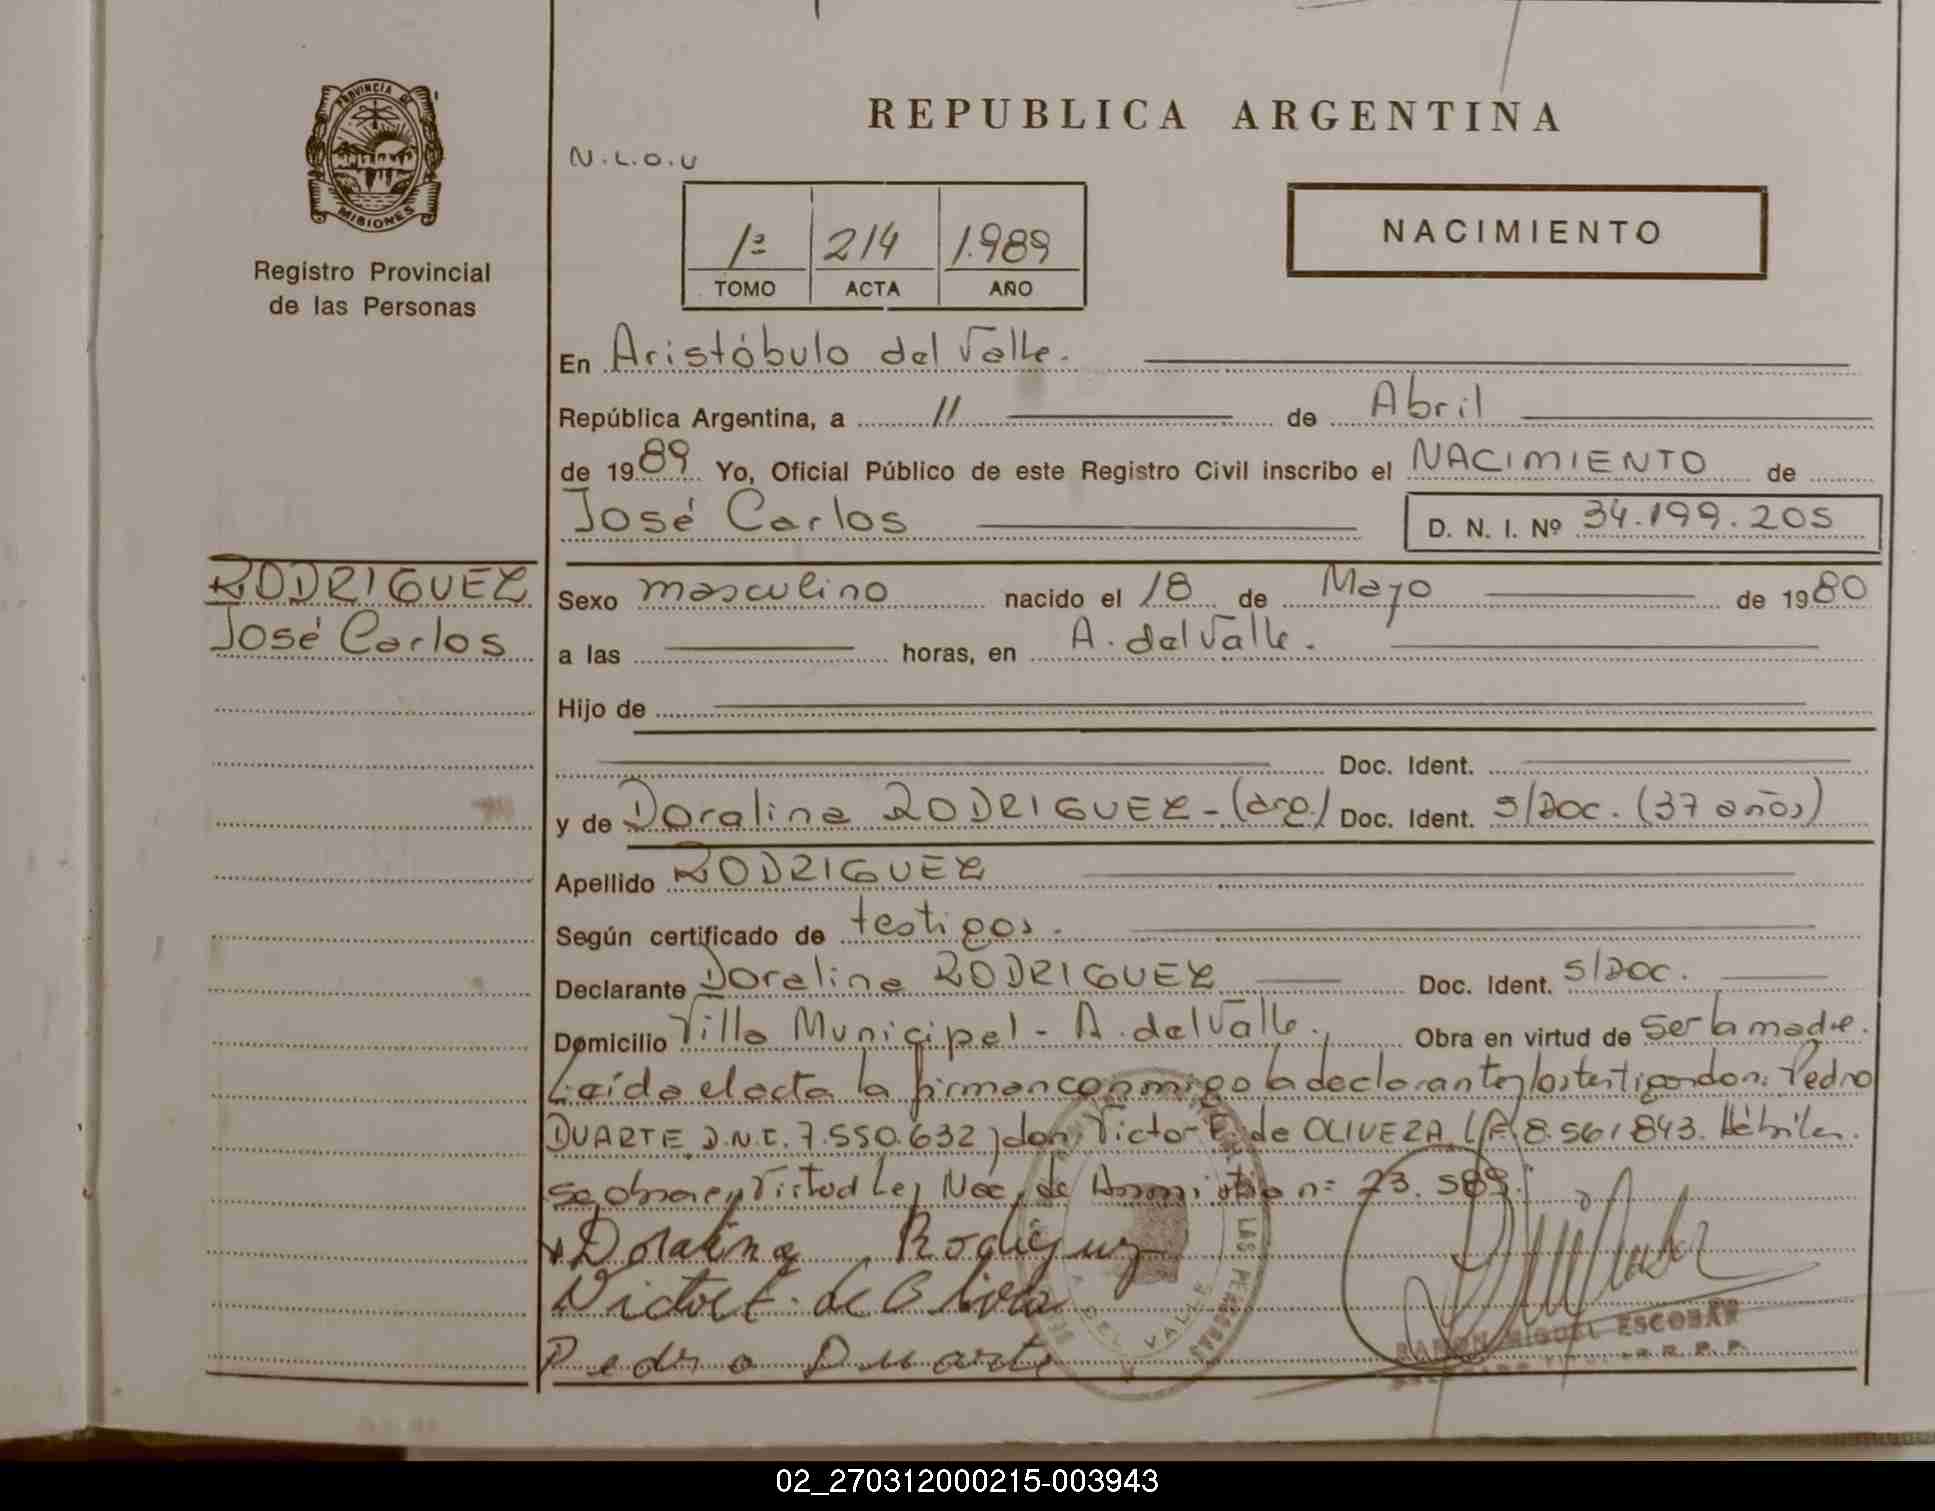 REPUBLICA ARGENTINA
PROVINCIA DE
MISIONES
Registro Provincial
de las Personas
N.L.O.U
1ª 214 1.989
TOMO ACTA AÑO
NACIMIENTO
En Aristóbulo del Valle.
República Argentina, a 11 de Abril
de 1989 Yo, Oficial Público de este Registro Civil inscribo el NACIMIENTO de
José Carlos D. N. I. Nº 34.199.205
RODRIGUEZ
José Carlos
Sexo masculino nacido el 18 de Mayo de 1980
a las horas, en A. del Valle.
Hijo de
Doc. Ident.
y de Doralina RODRIGUEZ - (arg.) Doc. Ident. s/Doc. (37 años)
Apellido RODRIGUEZ
Según certificado de testigos.
Declarante Doralina RODRIGUEZ Doc. Ident. s/Doc.
Domicilio Villa Municipal - A. del Valle. Obra en virtud de ser la madre.
Leída el acta la firman conmigo la declarante y los testigos don: Pedro
DUARTE D.N.I. 7.550.632 y don Victor E. de OLIVERA L.E. 8.561.843. Hábiles.
se obra en Virtud Ley Nac. de Amnistia nº 23.589.
Doralina Rodriguez
Victor E. de Olivera
Pedro Duarte
LAS PERSONAS
A. DEL VALLE
RAMON MIGUEL ESCOBAR
R. P. P.
02_270312000215-003943